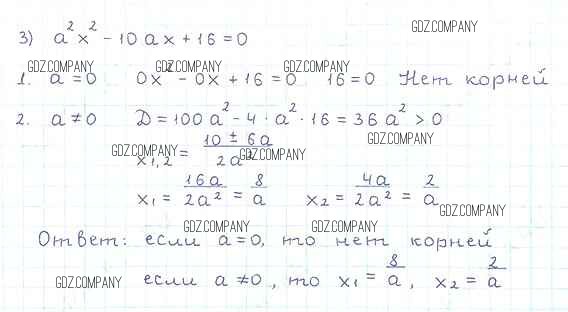 GDZ.COMPANY
3) a²x² - 10ax + 16 = 0
GDZ.COMPANY GDZ.COMPANY GDZ.COMPANY
1. a = 0 0x² - 0x + 16 = 0 16 = 0 Нет корней
2. a ≠ 0 D = 100a² - 4 · a² · 16 = 36a² > 0
GDZ.COMPANY
x₁,₂ = (10 ± 6a)/(2a²)
GDZ.COMPANY GDZ.COMPANY
x₁ = 16a/2a² = 8/a x₂ = 4a/2a² = 2/a
GDZ.COMPANY
GDZ.COMPANY GDZ.COMPANY
Ответ: если a = 0, то нет корней
GDZ.COMPANY если a ≠ 0, то x₁ = 8/a, x₂ = 2/a